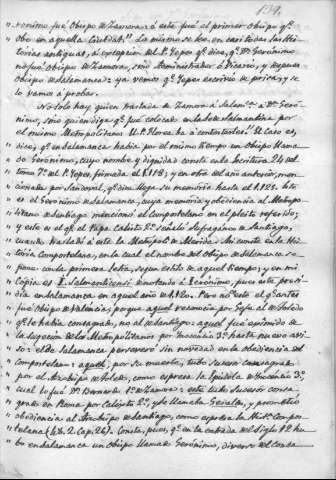 134.
ronimo fué Obispo de Zamora: á este fué el primer Obispo qᵉ
" obo en aquella Ciudad". Lo mismo se lee en casi todas las His
" torias antiguas, á excepcion del P. Yepes qᵉ dice, qᵉ Dⁿ Geronimo
" no fue Obispo de Zamora, sino Administrador ó Vicario, y
" Obispo de Salamanca: ya vemos qᵉ Yepes escrivió de prisa, y se
" lo vamos a probar.
" No solo hay quien traslada de Zamora á Salamᶜᵃ a Dⁿ Gero
" nimo, sino quien diga qᵉ fue colocado en la Sede salmantina por
" el mismo Metropolitano. El P. Florez ha de contentarles. El caso es,
" dice, qᵉ en Salamanca habia por el mismo tiempo un Obispo llama
" do Geronimo, cuyo nombre y dignidad consta en la Escritura 24 del
" tomo 7º del P. Yepes, firmada el 1118; y en otra del año anterior, men
" cionada por Sandoval, qᵉ dice llega su memoria hasta el 1125. Este
" es el Geronimo de Salamanca, cuya memoria y obediencia al Metropo
" litano de Santiago mencionó el Compostelano en el pleito referido;
" y este es qᵉ el Papa Calisto 2º señaló Sufraganeo de Santiago,
" cuando trasladó á este la Metropoli de Merida. Asi consta en la His
" toria Compostelana, en la cual el nombre del Obispo de Salamanca se
" pone con la primera letra, segun estilo de aquel tiempo; y en mi
" Copia es I. Salmanticensi denotando á Ieronimo, pues este presi
" dia en Salamanca en aquel año de 1120. Pero no este el qᵉ antes
" fue Obispo de Valencia, porque aquel reconocia por Gefe al de Toledo
" qᵉ lo habia consagrado, no al de Santiago: aquel fue eximido de
" la sugecion de los Metropolitanos por Inocencio 3º hasta nuevo avi
" so: el de Salamanca perseveró sin novedad en la obediencia del
" Compostelano: aquel, por su muerte, tubo sucesor consagrado
" por el Arzobispo de Toledo, como expresa la Epistola de Inocencio 3º
" cual lo fue Dⁿ Bernardo 1º de Zamora: este tubo sucesor consa
" grado en Roma por Calisto 2º, y se llamaba Geraldo, y prometió
" obediencia al Arzobispo de Santiago, como expresa la Histᵃ Compos
" telana (Lib. 2. Cap. 26). Consta, pues, qᵉ en la entrada del siglo 12 hu
" bo en Salamanca un Obispo llamado Geronimo, diverso del consa